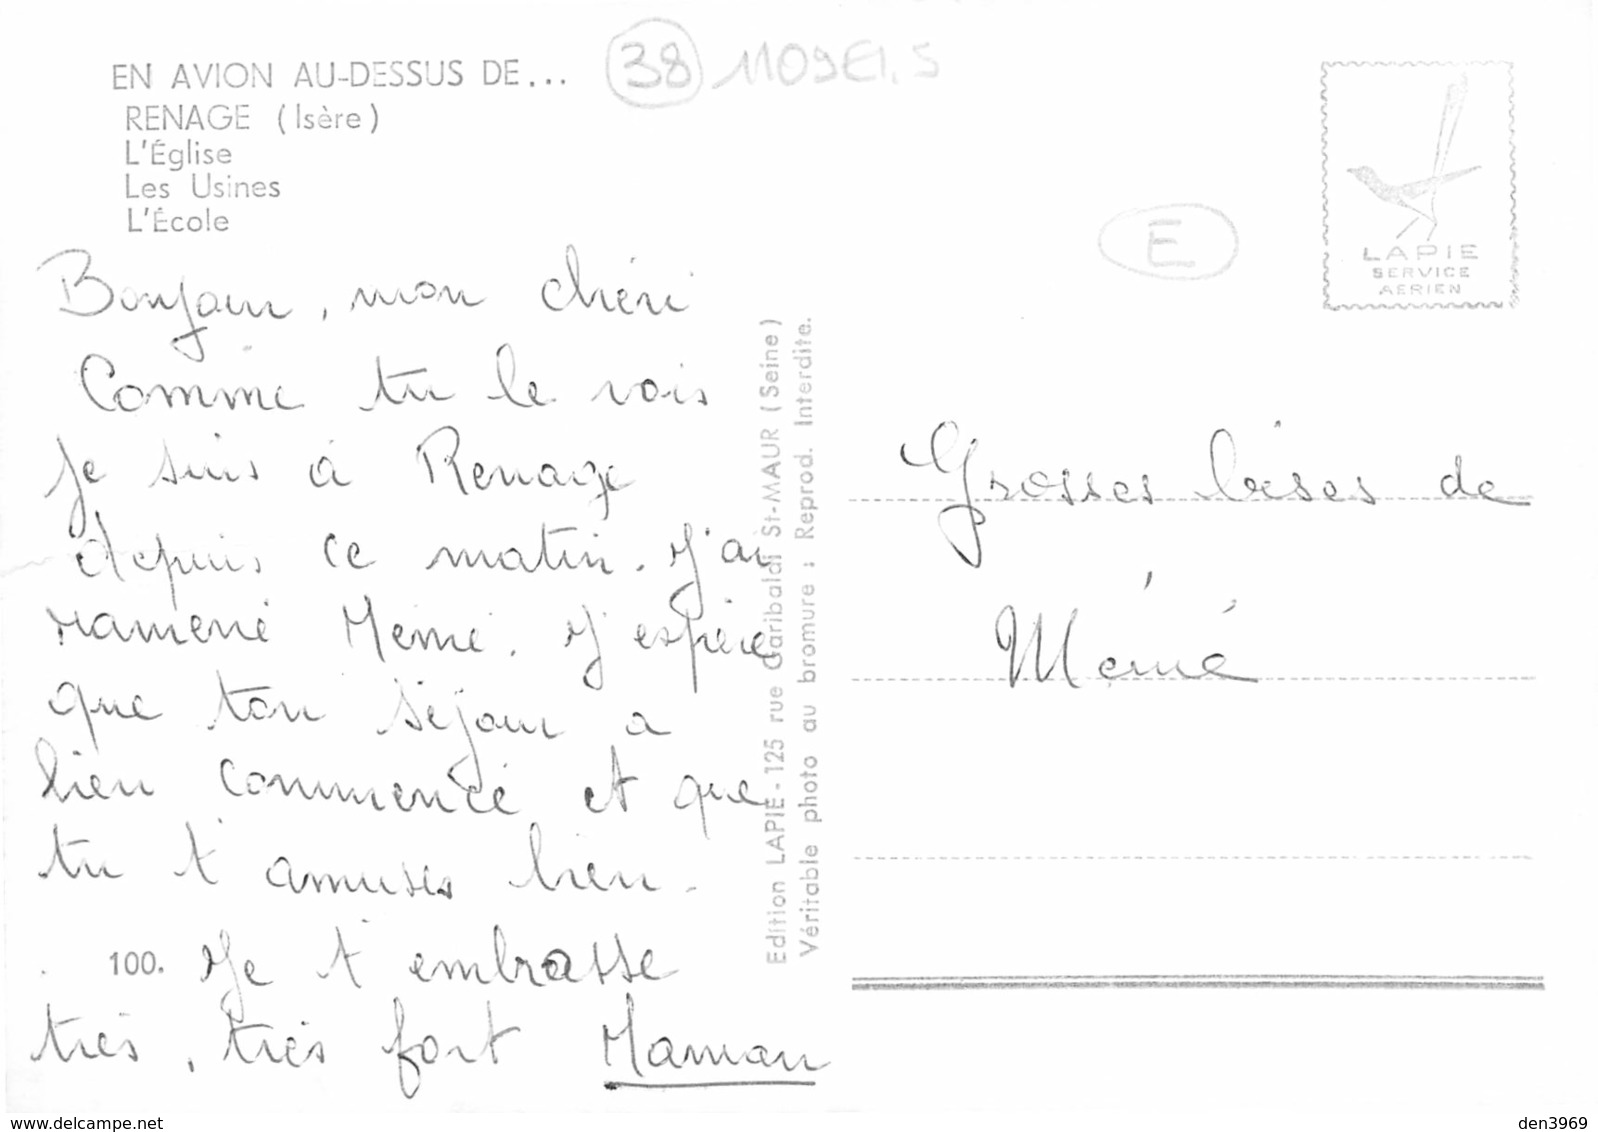 38 1109E1.5
EN AVION AU-DESSUS DE...
RENAGE (Isère)
L'Église
Les Usines
L'École
Bonjour, mon chéri
Comme tu le vois
je suis à Renage
depuis ce matin. J'ai
ramené Mémé. J'espère
que ton séjour a
bien commencé et que
tu t'amuses bien.
100. Je t'embrasse
très, très fort Maman
Edition LAPIE - 125 rue Garibaldi St-MAUR (Seine)
Véritable photo au bromure : Reprod. Interdite.
LAPIE
SERVICE
AERIEN
E
Grosses bises de
Mémé
www.delcampe.net
den3969